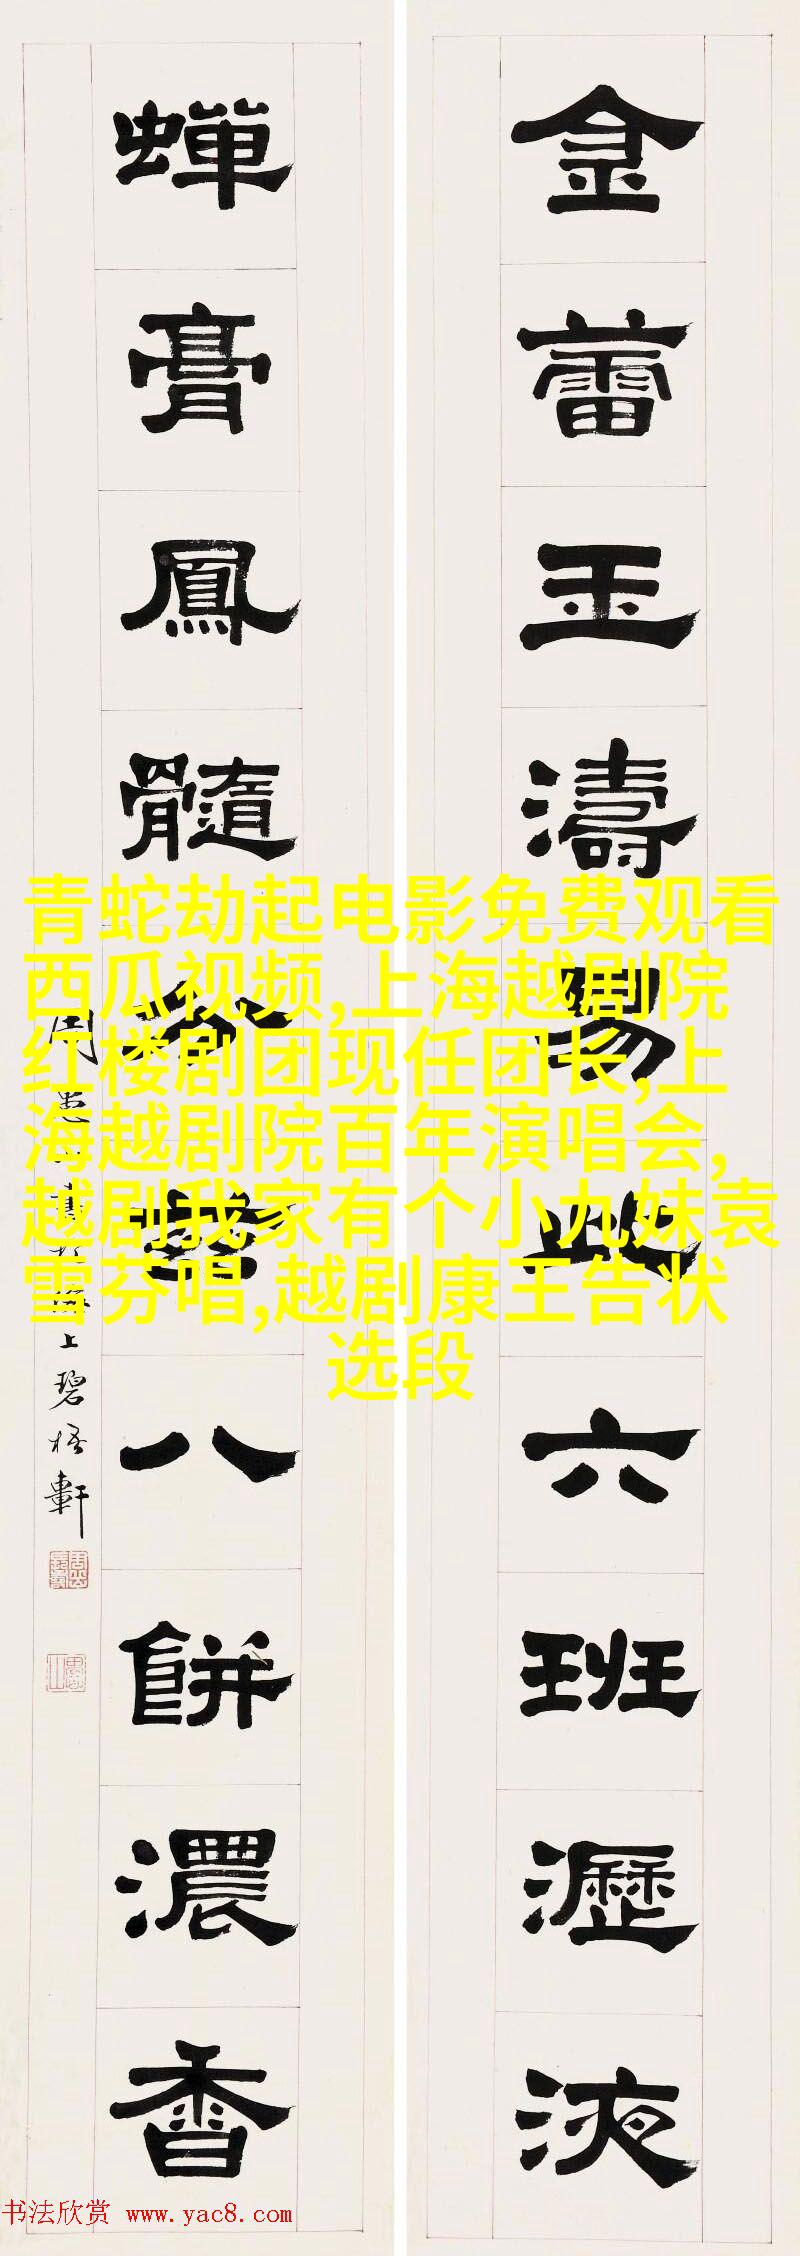 金蕾玉濤
此六班瀝液
蟬膏鳳髓
八餅濃香
周
上碧梧軒
青蛇劫起电影免费观看
西瓜视频,上海越剧院
红楼剧团现任团长,上
海越剧院百年演唱会,
越剧我家有个小九妹袁
雪芬唱,越剧康王告状
选段
书法欣赏 www.yac8.com